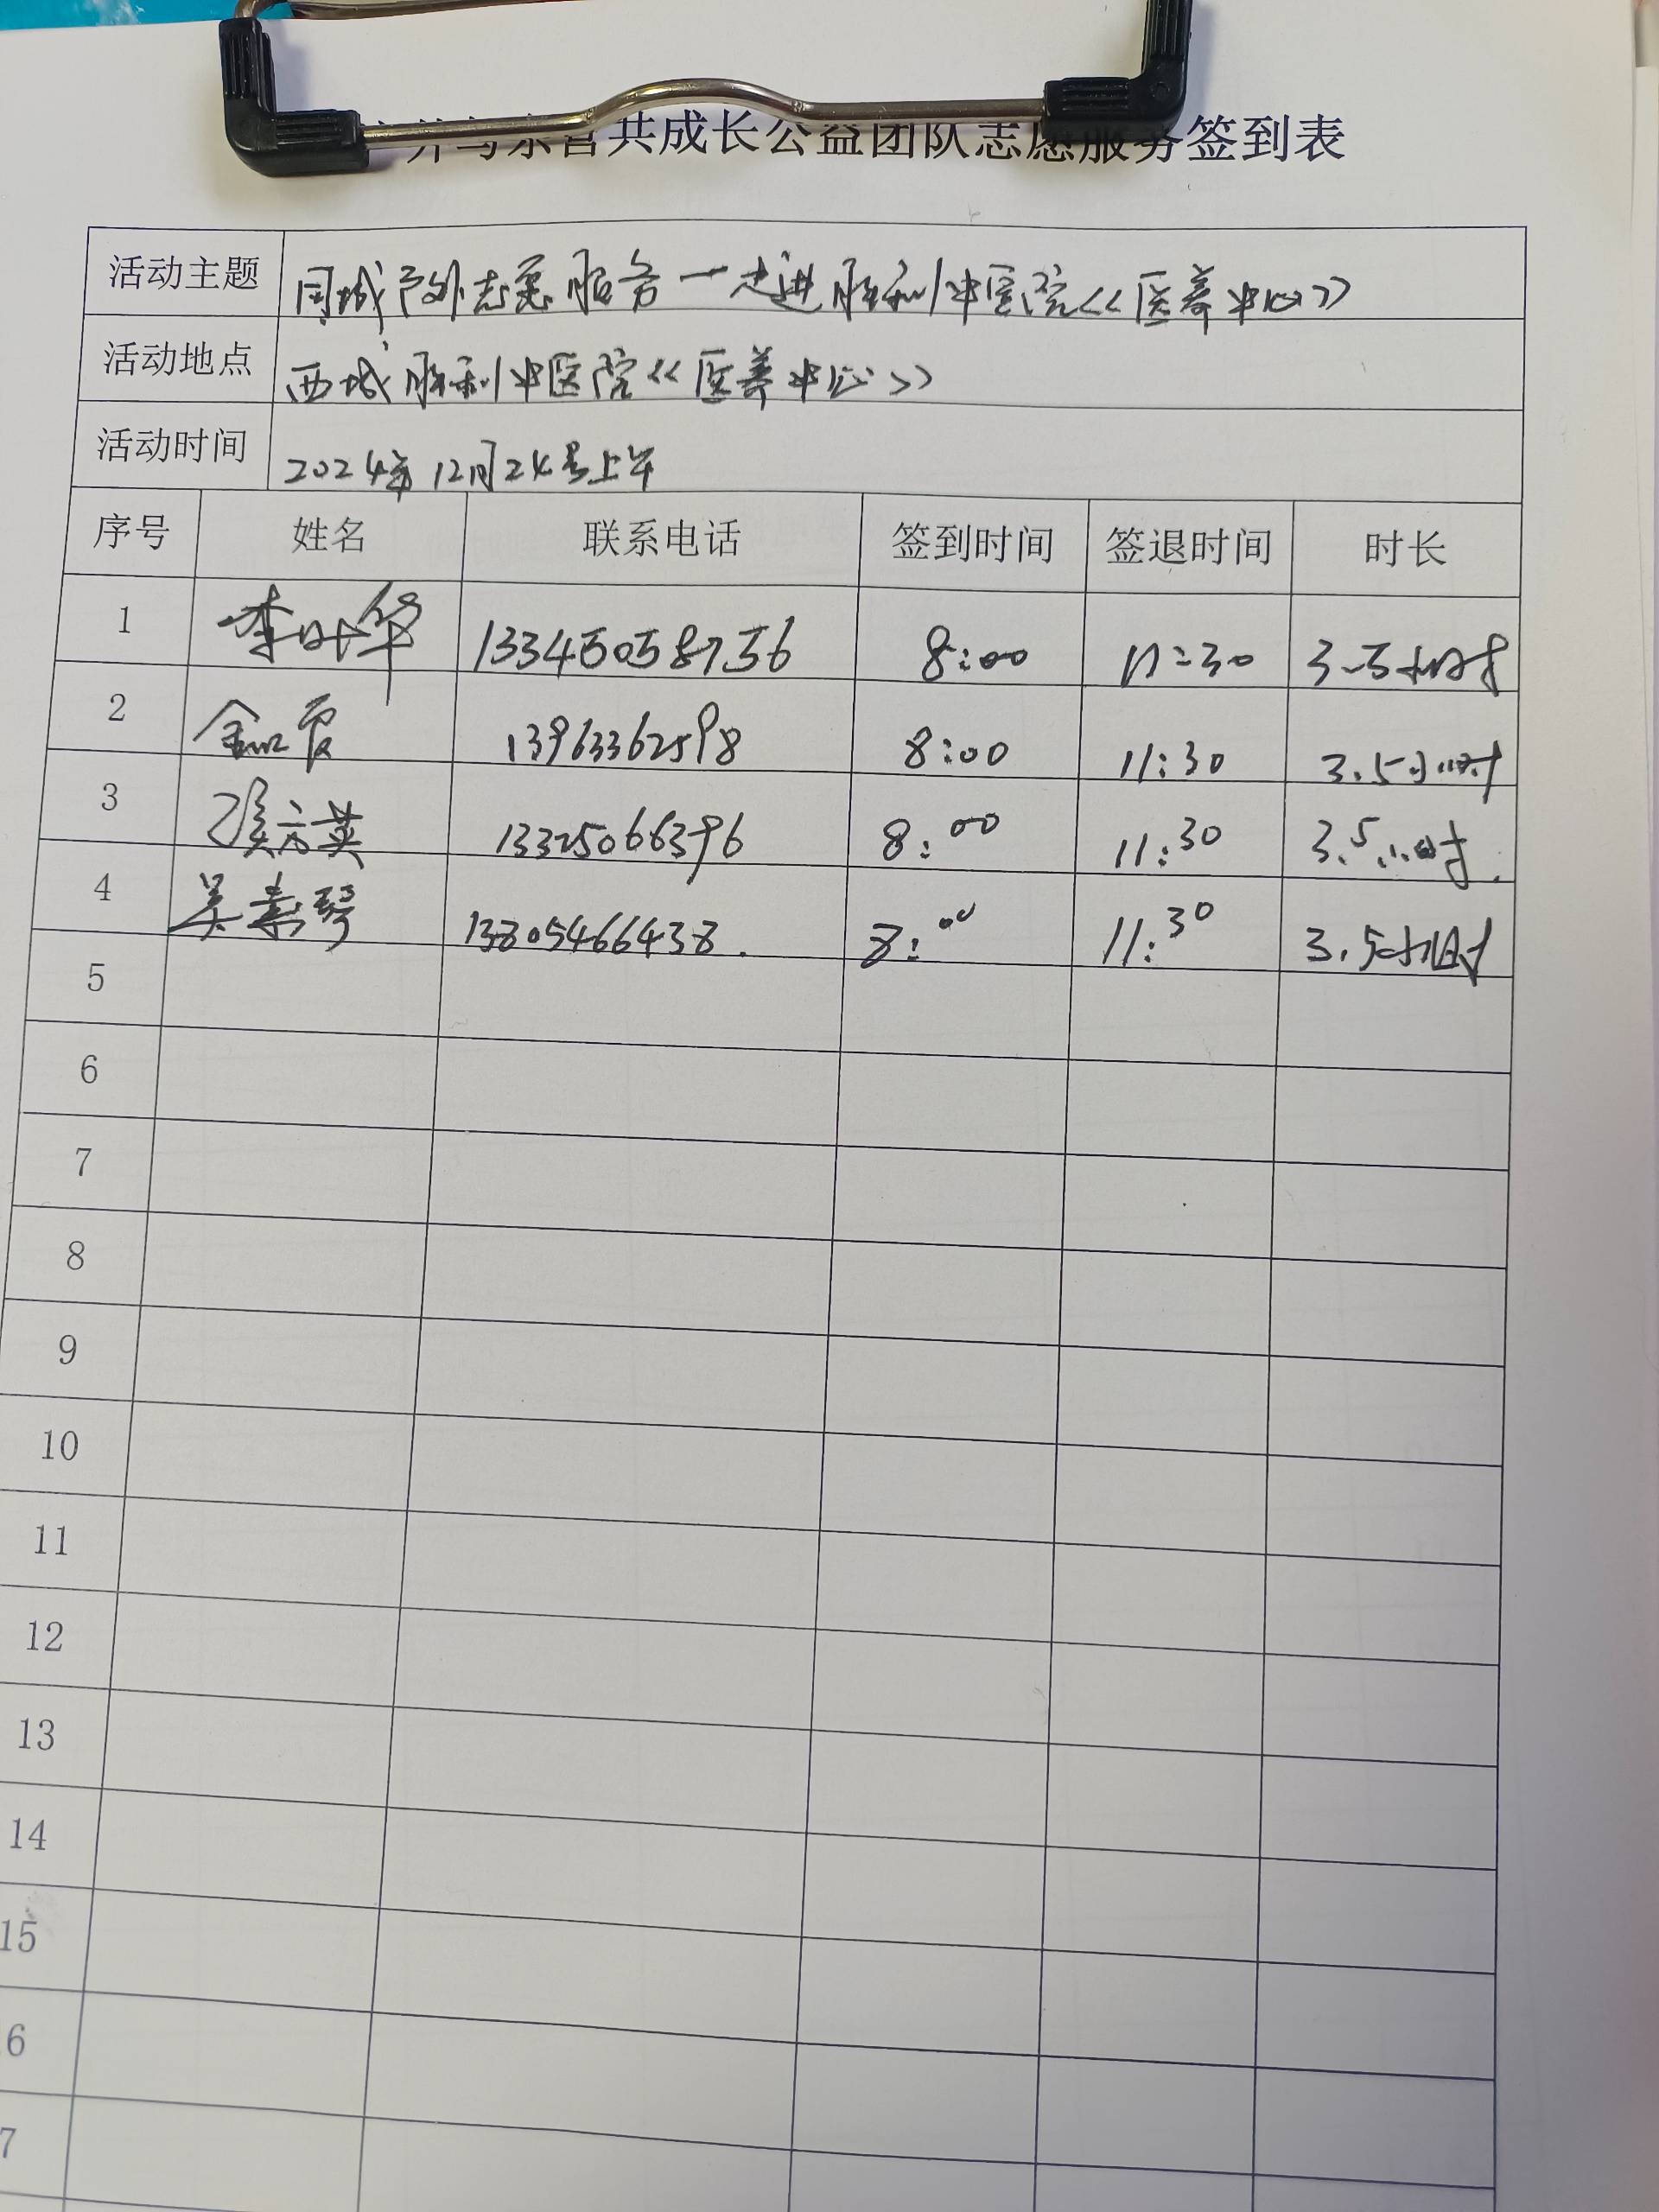 共成长公益团队志愿服务签到表
活动主题 同城户外志愿服务一走进胜利中医院<<医养中心>>
活动地点 西城胜利中医院<<医养中心>>
活动时间 2024年12月24号上午
序号 姓名 联系电话 签到时间 签退时间 时长
1 李叶华 13345058756 8:00 11:30 3.5小时
2 13963362598 8:00 11:30 3.5小时
3 13325066396 8:00 11:30 3.5小时.
4 吴素琴 13805466438. 8:00 11:30 3.5小时
5
6
7
8
9
10
11
12
13
14
15
6
7